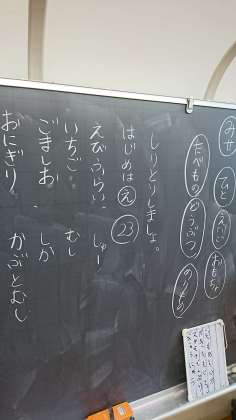 みせ
ひと
えいご
おもちゃ
たべもの
どうぶつ
のりもの
しりとりしましょ。
はじめは え 23
えびふらい しゅー
いちご むし
ごましお しか
おにぎり かぶとむし